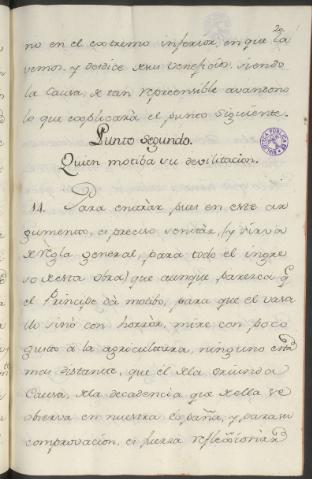 no en el extremo inferior, en que la
vemos, y desdice su veneficio, siendo
la Causa, tan reprensible avandono
lo que explicará el punto siguiente.
Punto segundo.
Quien motiba su devilitacion.
14. Para entràr pues en este ar
gumento, es preciso sentàr, (y sirva
de règla general, para todo el ingre
so de esta obra) que aunque paresca q̃
el Principe dà motibo, para que el vasa
llo sinò con horròr, mire con poco
gusto à la agricultura, ninguno està
mas distante, que èl de la oriunda
Causa, de la decadencia que de ella se
observa en nuestra España, y para su
comprovacion, es fuerza reflexionàr